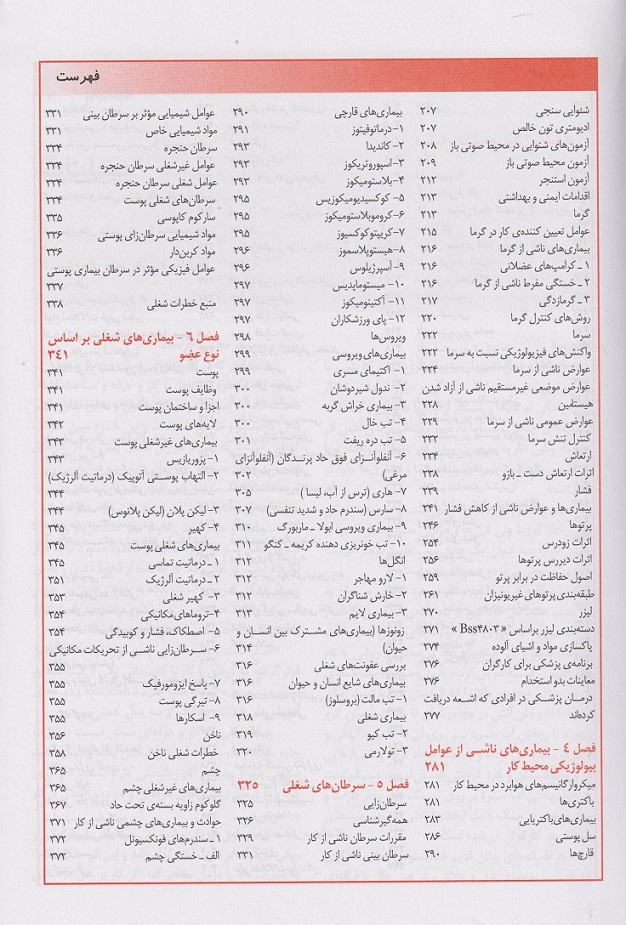 فهرست
شنوایی سنجی ۲۰۷
ادیومتری تون خالص ۲۰۷
آزمون‌های شنوائی در محیط صوتی باز ۲۰۸
آزمون محیط صوتی باز ۲۰۹
آزمون استنجر ۲۱۲
اقدامات ایمنی و بهداشتی ۲۱۳
گرما ۲۱۳
عوامل تعیین کننده‌ی کار در گرما ۲۱۵
بیماری‌های ناشی از گرما ۲۱۶
۱ ـ کرامپ‌های عضلانی ۲۱۶
۲ ـ خستگی مفرط ناشی از گرما ۲۱۶
۳ ـ گرمازدگی ۲۱۷
روش‌های کنترل گرما ۲۲۰
سرما ۲۲۲
واکنش‌های فیزیولوژیکی نسبت به سرما ۲۲۲
عوارض ناشی از سرما ۲۲۴
عوارض موضعی غیرمستقیم ناشی از آزاد شدن
هیستامین ۲۲۸
عوارض عمومی ناشی از سرما ۲۲۹
کنترل تنش سرما ۲۳۲
ارتعاش ۲۳۴
اثرات ارتعاش دست ـ بازو ۲۳۸
فشار ۲۳۹
بیماری‌ها و عوارض ناشی از کاهش فشار ۲۴۱
پرتوها ۲۴۶
اثرات زودرس ۲۵۴
اثرات دیررس پرتوها ۲۵۶
اصول حفاظت در برابر پرتو ۲۵۹
طبقه‌بندی پرتوهای غیریونیزان ۲۶۱
لیزر ۲۷۰
دسته‌بندی لیزر براساس « Bss۴۸۰۳ » ۲۷۱
پاکسازی مواد و اشیای آلوده ۲۷۴
برنامه‌ی پزشکی برای کارگران ۲۷۶
معاینات بدو استخدام ۲۷۶
درمان پزشکی در افرادی که اشعه دریافت
کرده‌اند ۲۷۷
فصل ۴ - بیماری‌های ناشی از عوامل
بیولوژیکی محیط کار ۲۸۱
میکروارگانیسم‌های هوابرد در محیط کار ۲۸۱
باکتری‌ها ۲۸۱
بیماری‌های باکتریایی ۲۸۳
سل پوستی ۲۸۶
قارچ‌ها ۲۹۰
بیماری‌های قارچی ۲۹۰
۱- درماتوفیتوز ۲۹۱
۲- کاندیدا ۲۹۳
۳- اسپوروتریکوز ۲۹۳
۴- بلاستومیکوز ۲۹۳
۵- کوکسیدیومیکوزیس ۲۹۵
۶- کروموبلاستومیکوز ۲۹۵
۷- کریپتوکوکسیوز ۲۹۵
۸- هیستوپلاسموز ۲۹۶
۹- آسپرژیلوس ۲۹۶
۱۰- میستومایدیس ۲۹۷
۱۱- آکتینومیکوز ۲۹۷
۱۲- پای ورزشکاران ۲۹۷
ویروس‌ها ۲۹۸
بیماری‌های ویروسی ۲۹۹
۱- اکتیمای مسری ۲۹۹
۲- ندول شیردوشان ۳۰۰
۳- بیماری خراش گربه ۳۰۰
۴- تب خال ۳۰۰
۵- تب دره ریفت ۳۰۱
۶- آنفلوآنزای فوق حاد پرندگان (آنفلوآنزای
مرغی) ۳۰۲
۷- هاری (ترس از آب، لیسا ) ۳۰۵
۸- سارس (سندرم حاد و شدید تنفسی) ۳۰۷
۹- بیماری ویروسی ابولا ـ ماربورگ ۳۱۰
۱۰- تب خونریزی دهنده کریمه ـ کنگو ۳۱۱
انگل‌ها ۳۱۲
۱- لارو مهاجر ۳۱۲
۲- خارش شناگران ۳۱۲
۳- بیماری لایم ۳۱۳
زونوزها (بیماری‌های مشترک بین انسان و
حیوان) ۳۱۴
بررسی عفونت‌های شغلی ۳۱۶
بیماری‌های شایع انسان و حیوان ۳۱۶
۱- تب مالت (بروسلوز) ۳۱۶
بیماری شغلی ۳۱۸
۲- تب کیو ۳۱۹
۳- تولارمی ۳۲۰
فصل ۵ - سرطان‌های شغلی ۳۲۵
سرطان‌زایی ۳۲۵
همه‌گیرشناسی ۳۲۶
مقررات سرطان ناشی از کار ۳۲۹
سرطان بینی ناشی از کار ۳۳۱
عوامل شیمیایی مؤثر بر سرطان بینی ۳۳۱
مواد شیمیایی خاص ۳۳۱
سرطان حنجره ۳۳۴
عوامل غیرشغلی سرطان حنجره ۳۳۴
عوامل شغلی سرطان حنجره ۳۳۴
سرطان‌های شغلی پوست ۳۳۴
سارکوم کاپوسی ۳۳۵
مواد شیمیایی سرطان‌زای پوستی ۳۳۶
مواد کربن‌دار ۳۳۶
عوامل فیزیکی مؤثر در سرطان بیماری پوستی
۳۳۷
منبع خطرات شغلی ۳۳۸
فصل ۶ - بیماری‌های شغلی بر اساس
نوع عضو ۳۴۱
پوست ۳۴۱
وظایف پوست ۳۴۱
اجزا و ساختمان پوست ۳۴۱
لایه‌های پوست ۳۴۲
بیماری‌های غیرشغلی پوست ۳۴۳
۱- پزوریازیس ۳۴۳
۲- التهاب پوستی آتوپیک (درماتیت آلرژیک)
۳۴۴
۳- لیکن پلان (لیکن پلانوس) ۳۴۴
۴- کهیر ۳۴۵
بیماری‌های شغلی پوست ۳۴۵
۱ ـ درماتیت تماسی ۳۴۵
۲- درماتیت آلرژیک ۳۵۱
۳- کهیر شغلی ۳۵۳
۴- تروماهای مکانیکی ۳۵۴
۵- اصطکاک، فشار و کوبیدگی ۳۵۴
۶- سرطان‌زایی ناشی از تحریکات مکانیکی
۳۵۵
۷- پاسخ ایزومورفیک ۳۵۵
۸- تیرگی پوست ۳۵۵
۹- اسکارها ۳۵۵
ناخن ۳۵۶
خطرات شغلی ناخن ۳۵۸
چشم ۳۶۵
بیماری‌های غیرشغلی چشم ۳۶۵
گلوکوم زاویه بسته‌ی تحت حاد ۳۶۷
حوادث و بیماری‌های چشمی ناشی از کار ۳۷۱
۱ ـ سندرم‌های فونکسیونل ۳۷۲
الف ـ خستگی چشم ۳۷۲